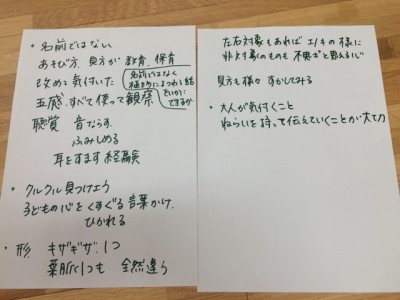 ・名前ではない
あそび方、見方が 教育、保育
改めて気付いた
名前ではなく
植物にまつわる話
をいかに
できるか
五感、すべて使って観察
聴覚 音ならす、
ふみしめる
耳をすます経験
・クルクル見つけよう
子どもの心をくすぐる言葉かけ、
ひかれる
・形 キザギザ、1つ
葉脈1つも 全然違う
左右対象もあれば エノキの様に
非対象のものも 不思ぎと思える心
見方も様々 すかしてみる
・大人が気付くこと
ねらいを持って伝えていくことが大切